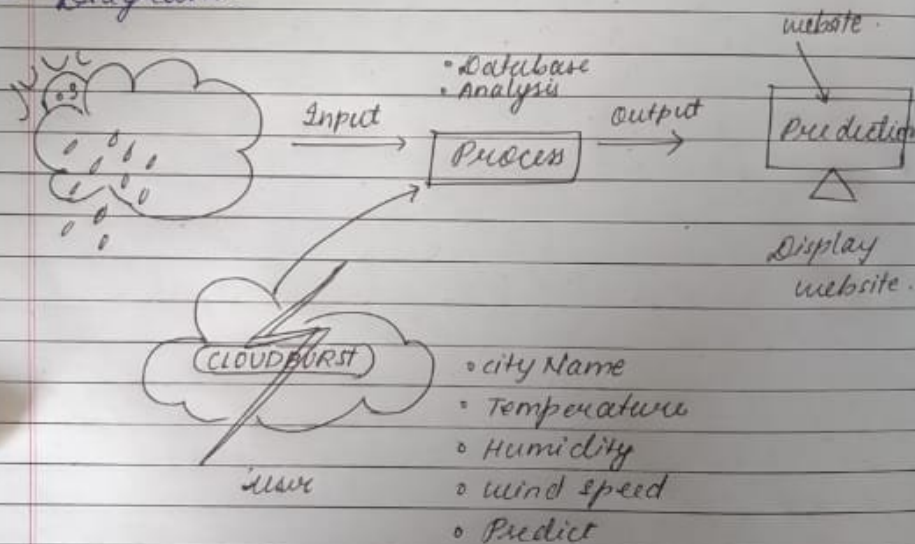 website.
• Database
• Analysis
Input
Output
Process
Prediction
Display
website.
CLOUDBURST
user
• city Name
• Temperature
• Humidity
• wind speed
• Predict